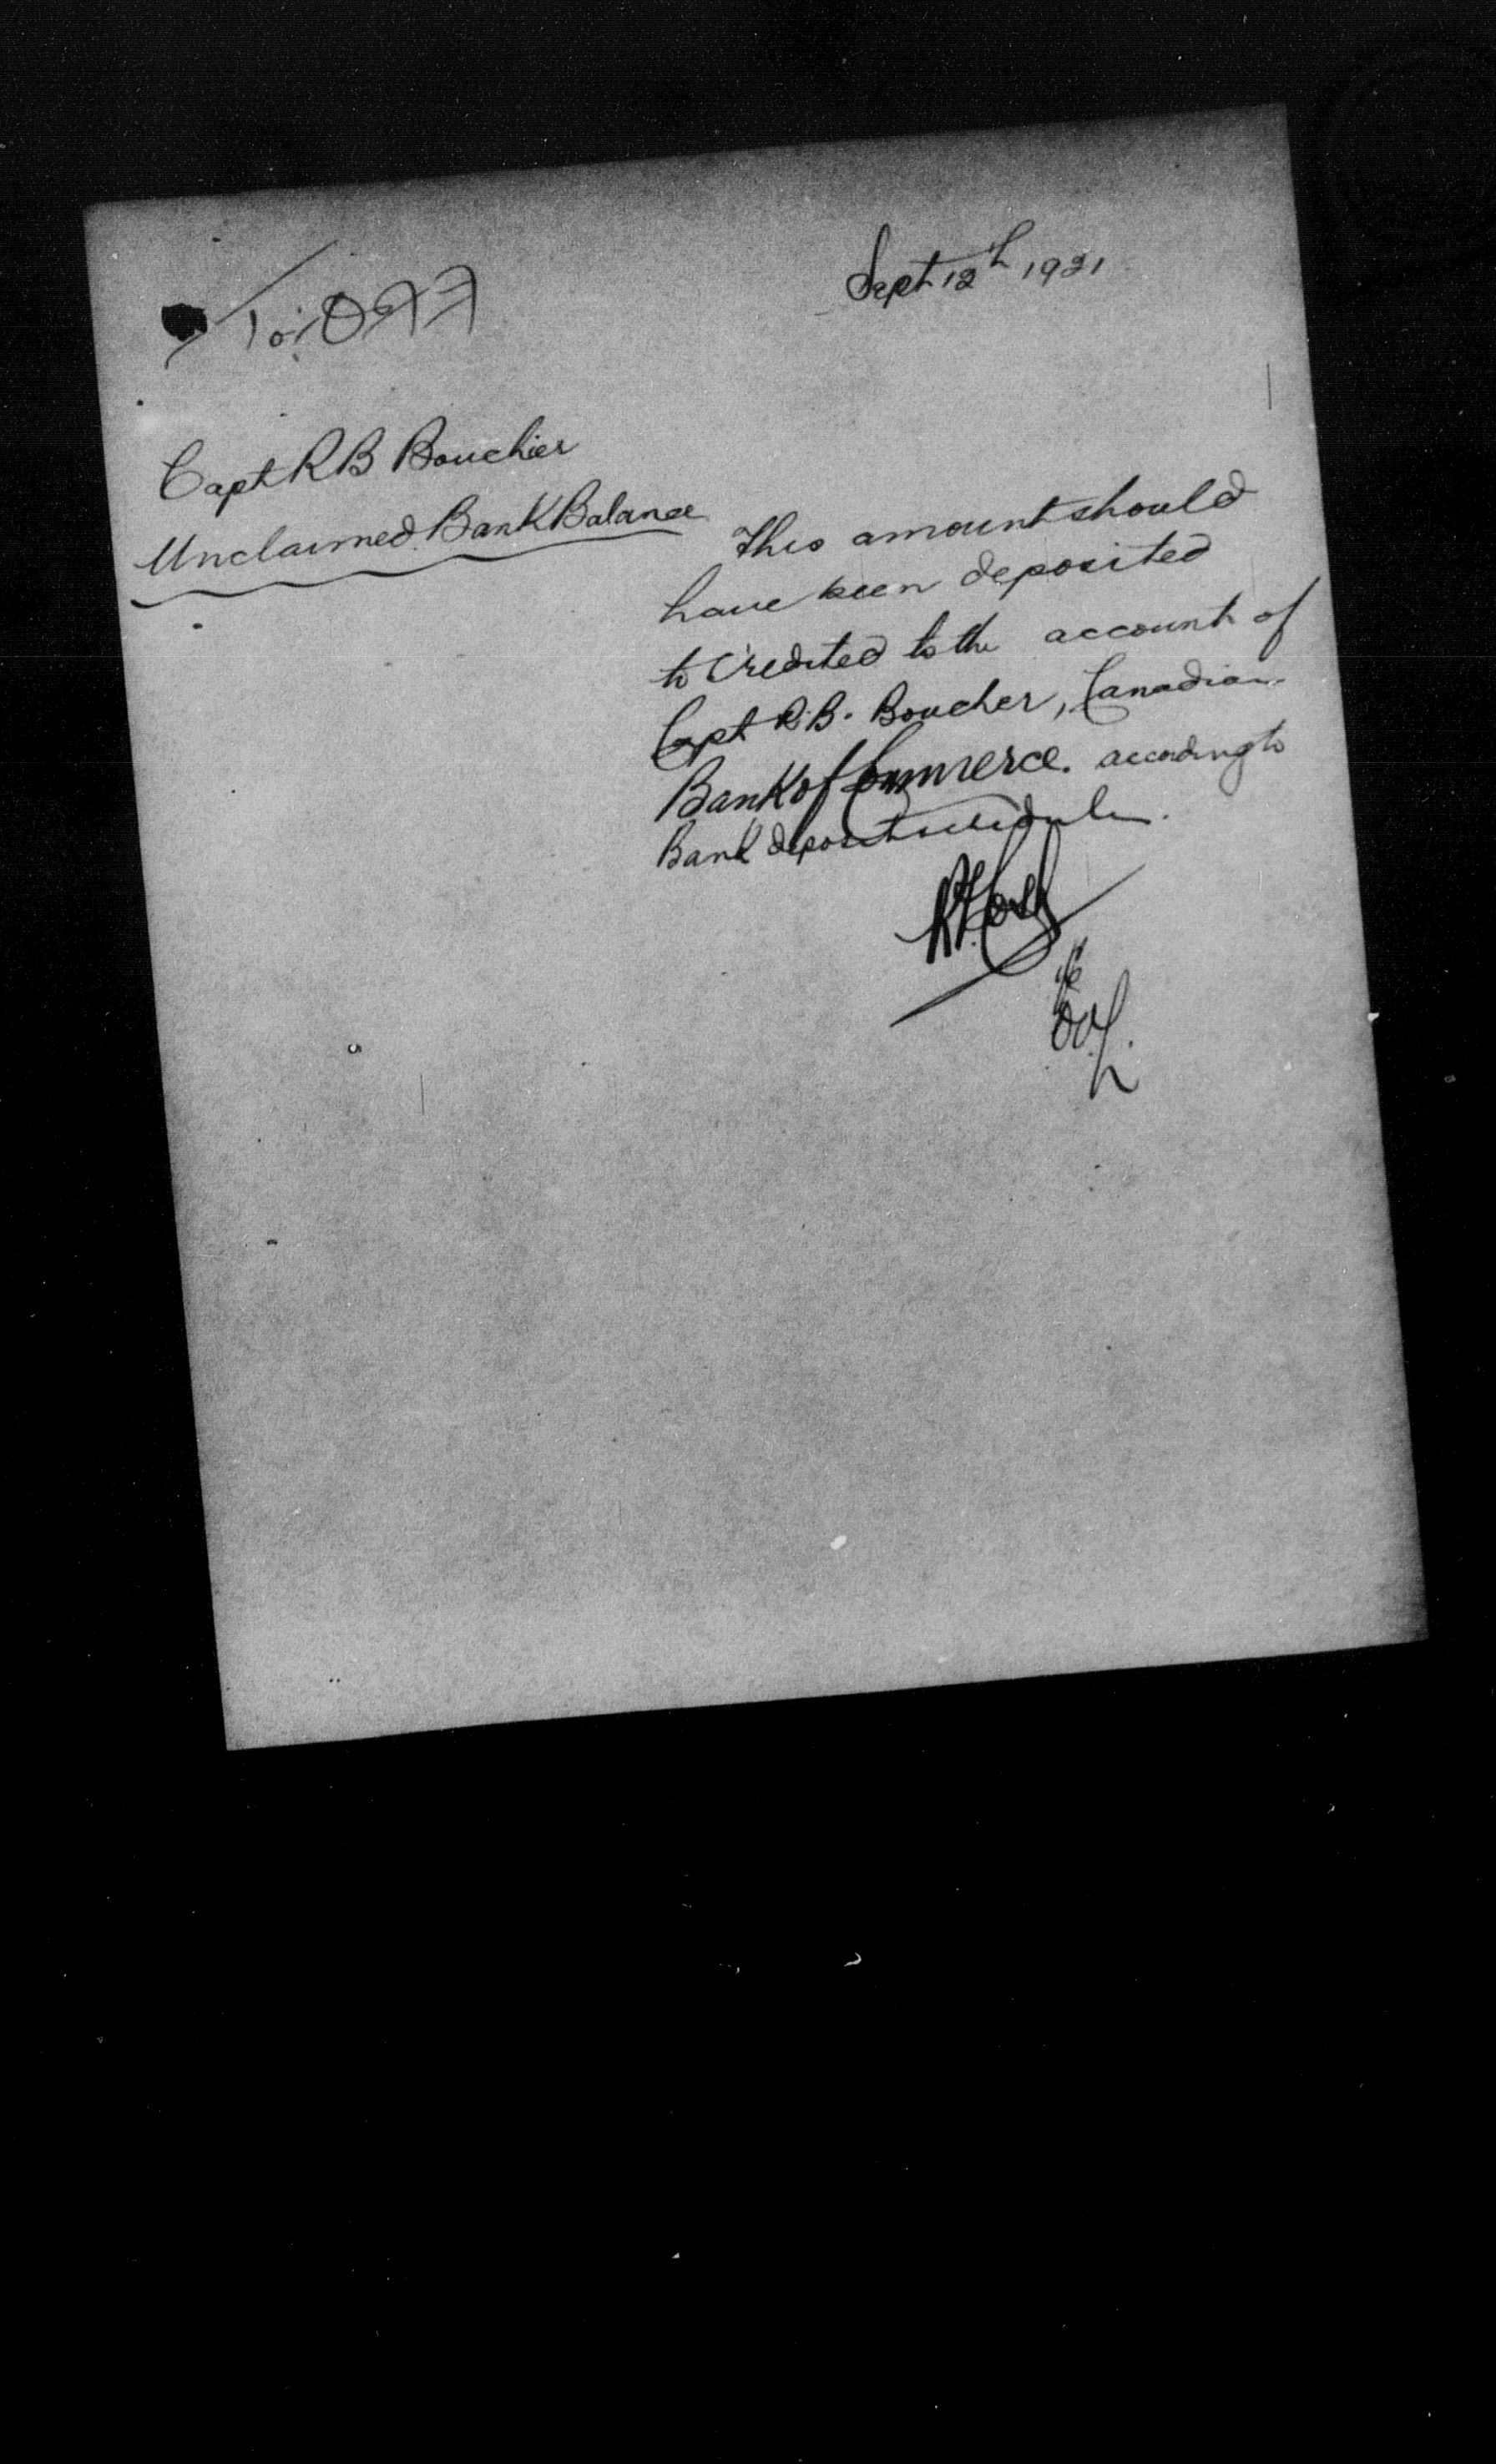 Sept 12th 1921
Capt R B Bouchier
Unclaimed Bank Balance
This amount should
have been deposited
to credited to the account of
Capt R.B. Boucher, Canadian
Bank of Commerce. according to
Bank deposit schedule.